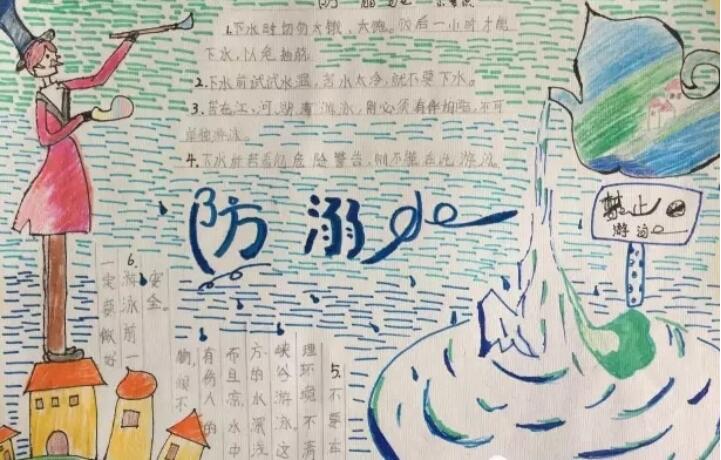 防溺
1.下水时切勿太饿、太饱。饭后一小时才能
下水,以免抽筋
2.下水前试试水温,若水太冷,就不要下水。
3.若在江、河、湖、海游泳,则必须有伴相陪,不可
单独游泳。
4.下水前若看见危险警告,则不能在此游泳
禁止
游泳
防溺水
6.
游泳前一
定要做好
安全。
5.不要在
理环境不清
峡谷游泳这
方的水深浅
而且凉,水中
有伤人的
物,很不